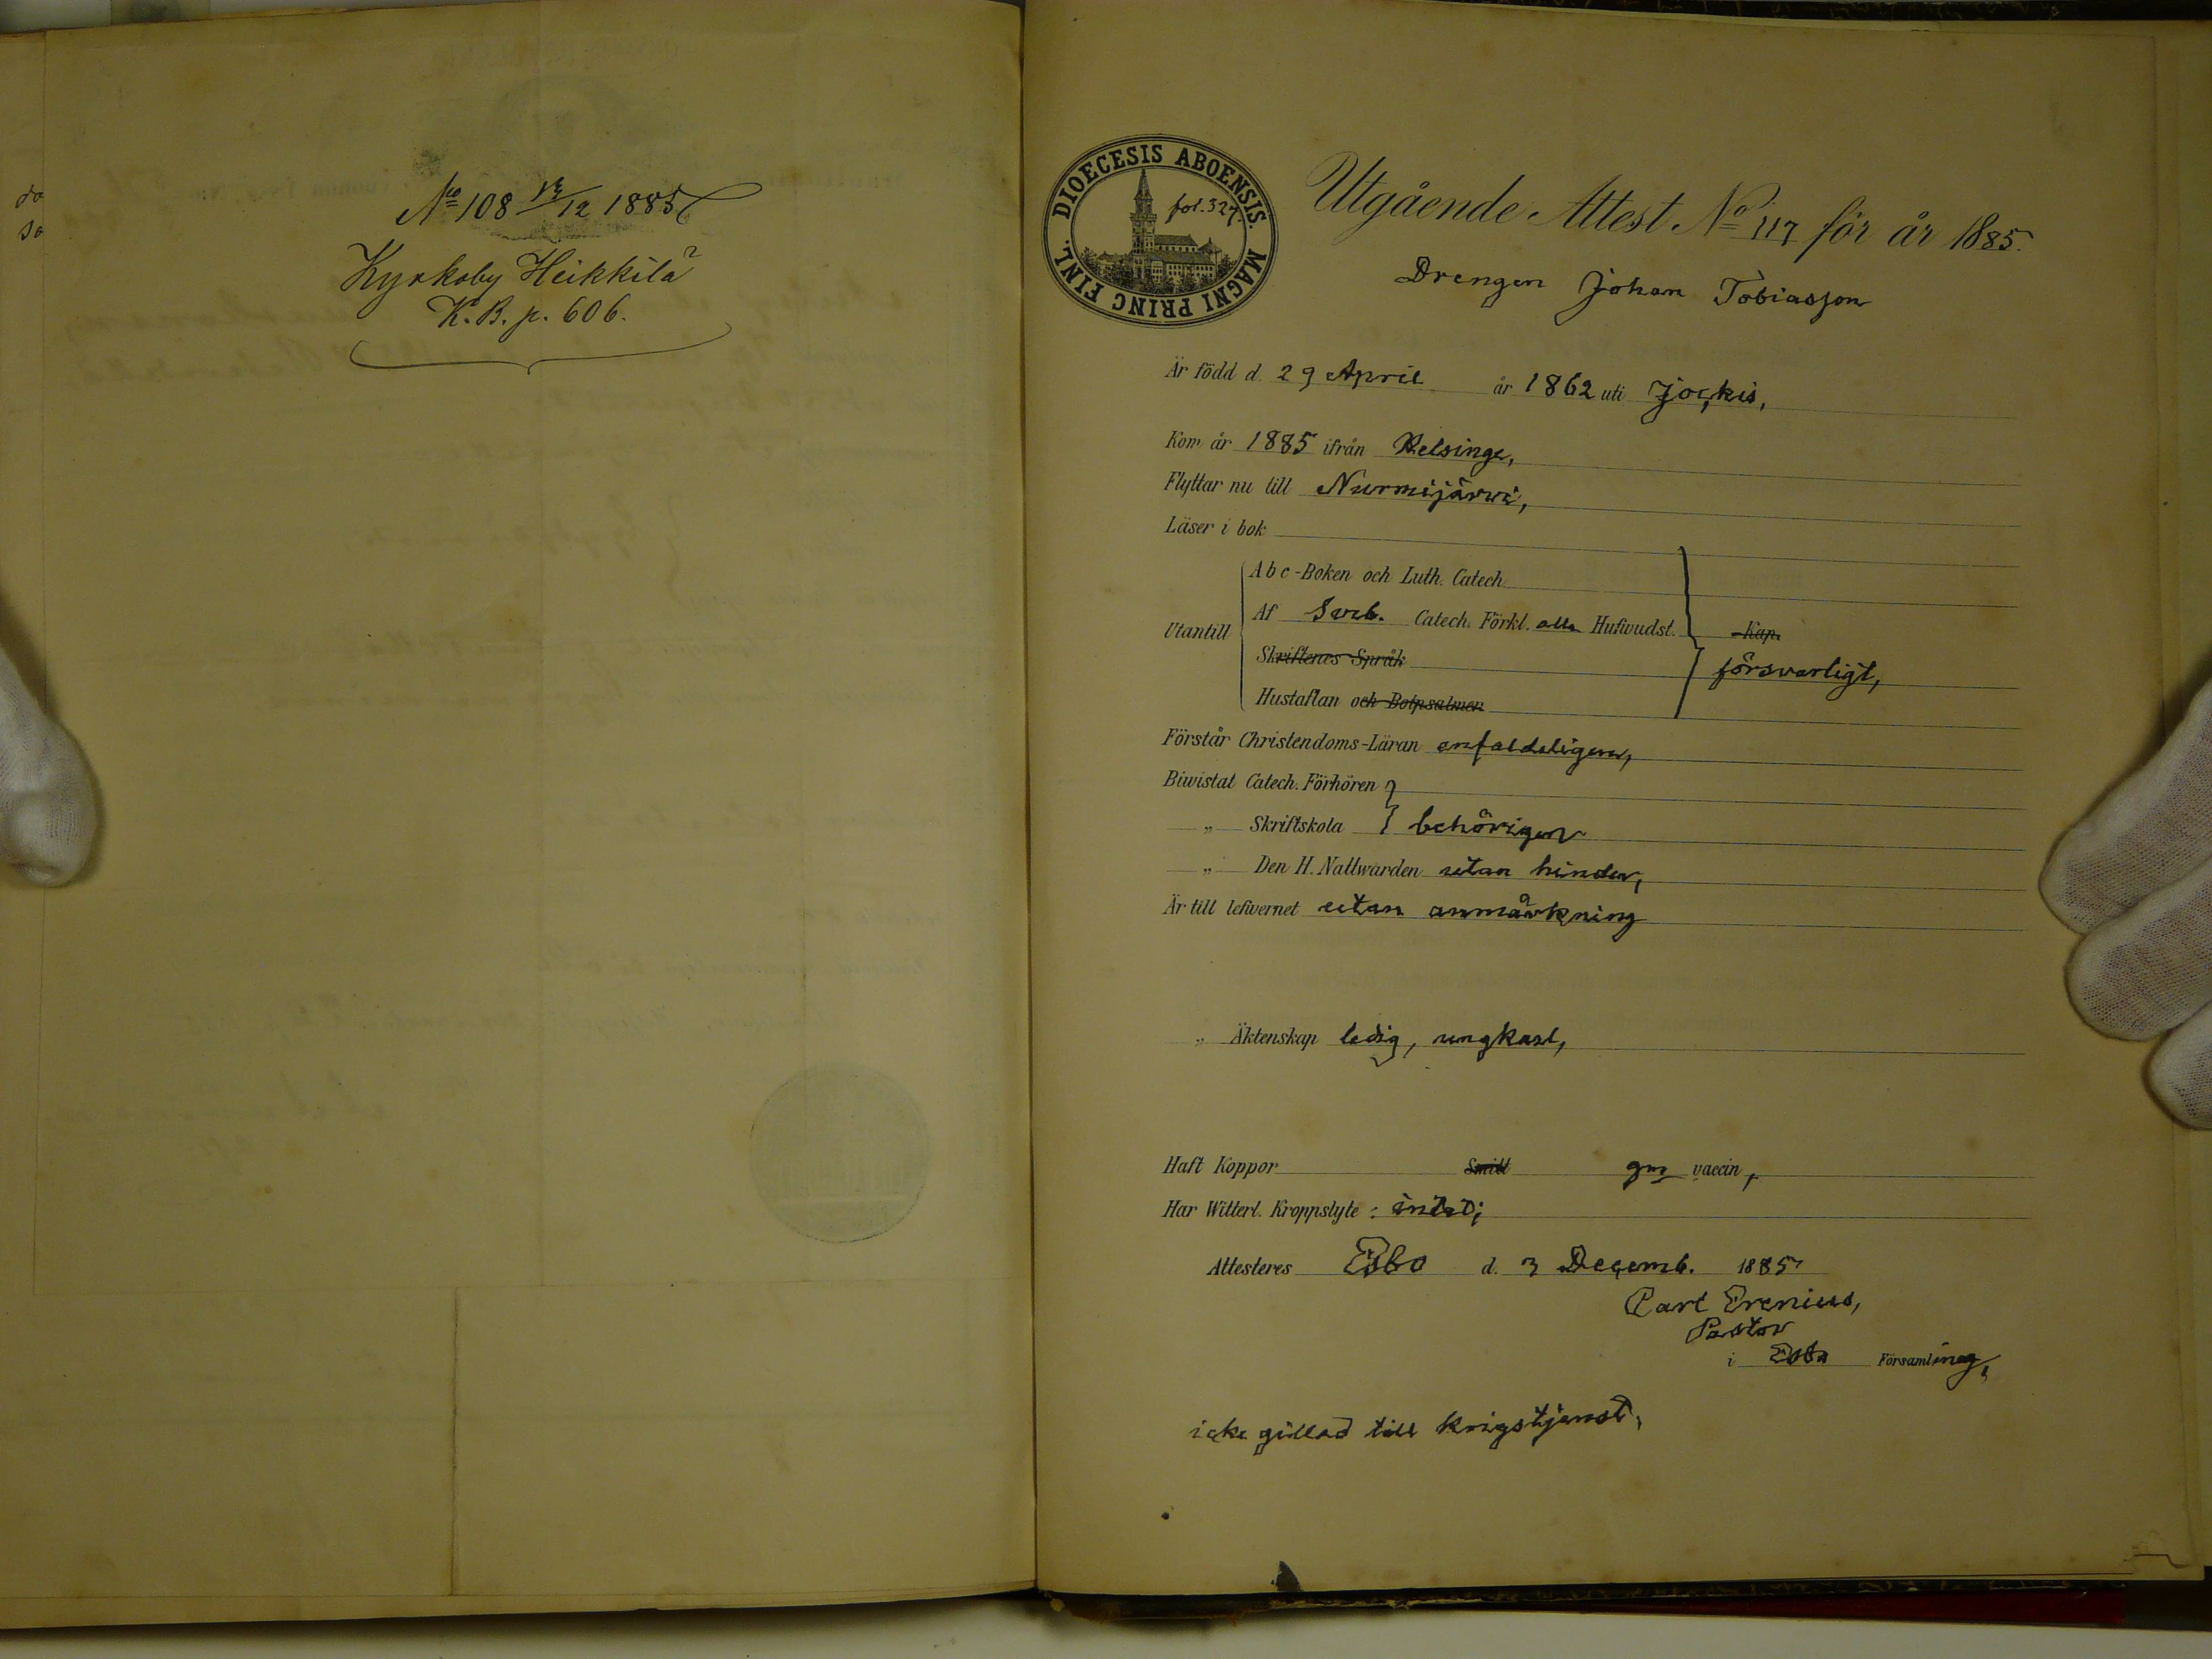 do
so
No 108 12/12 1885
Kyrkoby Heikkilä
K.B. p. 606.
DIOECESIS ABOENSIS. MAGNI PRINC FINL.
fol. 327.
Utgående Attest No 117 för år 1885.
Drengen Johan Tobiasson
Är född d. 29 April år 1862 uti Jockis,
Kom år 1885 ifrån Helsinge,
Flyttar nu till Nurmijärvi,
Läser i bok
Abc-Boken och Luth. Catech.
Utantill
Af Sveb. Catech. Förkl. alla Hufwudst. Kap.
Skriftenes Språk
försvarligt,
Hustaflan och Botpsalmen
Förstår Christendoms-Läran enfaldeligen,
Biwistat Catech. Förhören
„ Skriftskola behörigen
„ Den H. Nattwarden utan hinder,
Är till lefwernet utan anmärkning
„ Äktenskap ledig, ungkarl,
Haft Koppor Smitt gm vaccin,
Har Witterl. Kroppslyte: intet;
Attesteres Esbo d. 3 Decemb. 1885
Carl Erenius,
Pastor
i Esbo Församling,
icke gillad till krigstjenst,